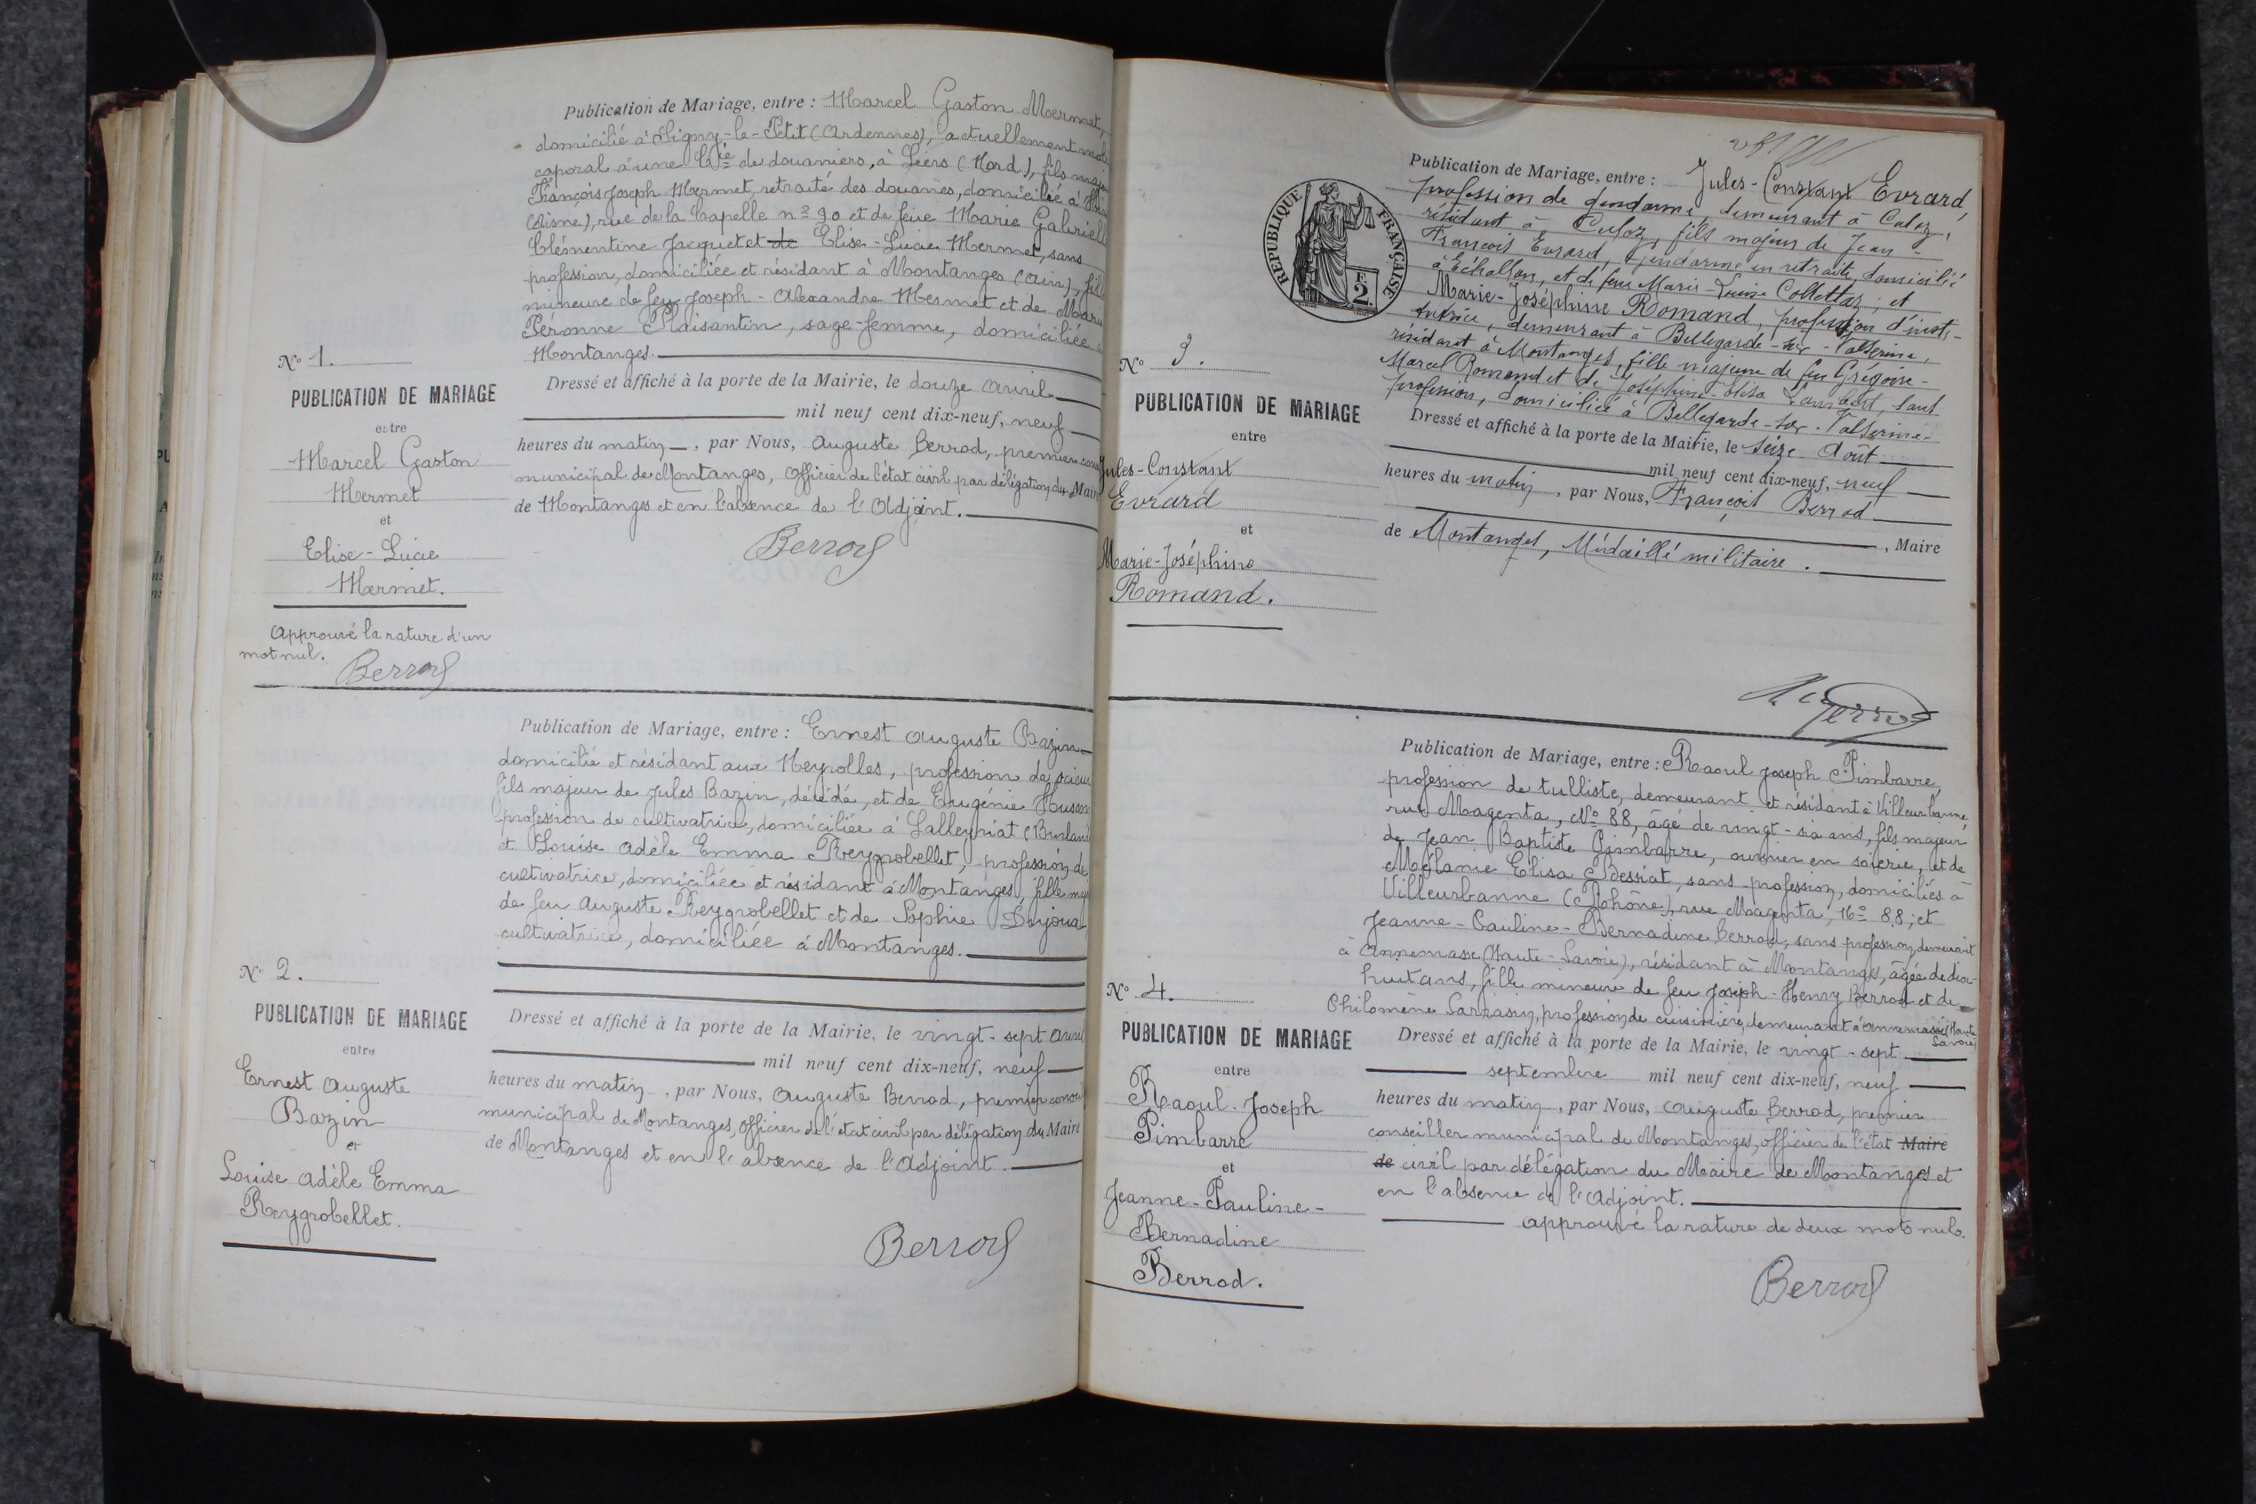 Publication de Mariage, entre : Marcel Gaston Mermet,
domicilié à Signy-le-Petit (Ardennes), actuellement
caporal à une Cie de douaniers, à Leers (Nord), fils
François Joseph Mermet, retraité des douanes, domicilié à
(Aisne), rue de la Capelle nº 90 et de feue Marie Gabrielle
Clémentine Jacquet et de Elise-Lucie Mermet, sans
profession, domiciliée et résidant à Montanges (Ain), fille
mineure de feu Joseph-Alexandre Mermet et de Marie
Péronne Plaisantin, sage-femme, domiciliée à
Montanges.
Nº 1.
PUBLICATION DE MARIAGE
entre
Marcel Gaston
Mermet
et
Elise-Lucie
Mermet.
Approuvé la rature d'un
mot nul.
Berrod
Dressé et affiché à la porte de la Mairie, le douze avril
mil neuf cent dix-neuf, neuf
heures du matin, par Nous, Auguste Berrod, premier
municipal de Montanges, Officier de l'état civil par délégation du Maire
de Montanges et en l'absence de l'Adjoint.
Berrod
Publication de Mariage, entre : Ernest Auguste Bazin
domicilié et résidant aux Neyrolles, profession de scieur
fils majeur de Jules Bazin, décédé, et de Eugénie Husson
profession de cultivatrice, domiciliée à Lalleyriat
et Louise Adèle Emma Reygrobellet, profession de
cultivatrice, domiciliée et résidant à Montanges, fille
de feu Auguste Reygrobellet et de Sophie
cultivatrice, domiciliée à Montanges.
Nº 2.
PUBLICATION DE MARIAGE
entre
Ernest Auguste
Bazin
et
Louise Adèle Emma
Reygrobellet.
Dressé et affiché à la porte de la Mairie, le vingt-sept avril
mil neuf cent dix-neuf, neuf
heures du matin, par Nous, Auguste Berrod, premier
municipal de Montanges, Officier de l'état civil par délégation du Maire
de Montanges et en l'absence de l'Adjoint.
Berrod
RÉPUBLIQUE FRANÇAISE
F.
2.
Publication de Mariage, entre : Jules-Constant Evrard,
profession de gendarme, demeurant à Culoz,
résidant à Culoz, fils majeur de Jean-
François Evrard, gendarme en retraite, domicilié
à Echallon, et de feue Marie-Louise Collettaz, et
Marie-Joséphine Romand, profession d'insti-
tutrice, demeurant à Bellegarde-sur-Valserine,
résidant à Montanges, fille majeure de feu Grégoire-
Marcel Romand et de Joséphine-Elisa Lambert, sans
profession, domiciliée à Bellegarde-sur-Valserine
Nº 3.
PUBLICATION DE MARIAGE
entre
Jules-Constant
Evrard
et
Marie-Joséphine
Romand.
Dressé et affiché à la porte de la Mairie, le seize Août
mil neuf cent dix-neuf, neuf
heures du matin, par Nous, François Berrod
, Maire
de Montanges, Médaillé militaire.
Publication de Mariage, entre : Raoul Joseph Pimbarre,
profession de tulliste, demeurant et résidant à Villeurbanne,
rue Magenta, Nº 88, âgé de vingt-six ans, fils majeur
de Jean Baptiste Pimbarre, ouvrier en soierie, et de
Mélanie Elisa Bessiat, sans profession, domiciliés à
Villeurbanne (Rhône), rue Magenta, Nº 88 ; et
Jeanne-Pauline-Bernadine Berrod, sans profession, demeurant
à Annemasse (Haute-Savoie), résidant à Montanges, âgée de dix-
huit ans, fille mineure de feu Joseph-Henry Berrod et de
Philomène Sarrasin, profession de cuisinière, demeurant à Annemasse (Haute
Savoie)
Nº 4.
PUBLICATION DE MARIAGE
entre
Raoul-Joseph
Pimbarre
et
Jeanne-Pauline-
Bernadine
Berrod.
Dressé et affiché à la porte de la Mairie, le vingt-sept
septembre mil neuf cent dix-neuf, neuf
heures du matin, par Nous, Auguste Berrod, premier
conseiller municipal de Montanges, officier de l'état Maire
de civil par délégation du Maire de Montanges et
en l'absence de l'Adjoint.
approuvé la rature de deux mots nuls.
Berrod